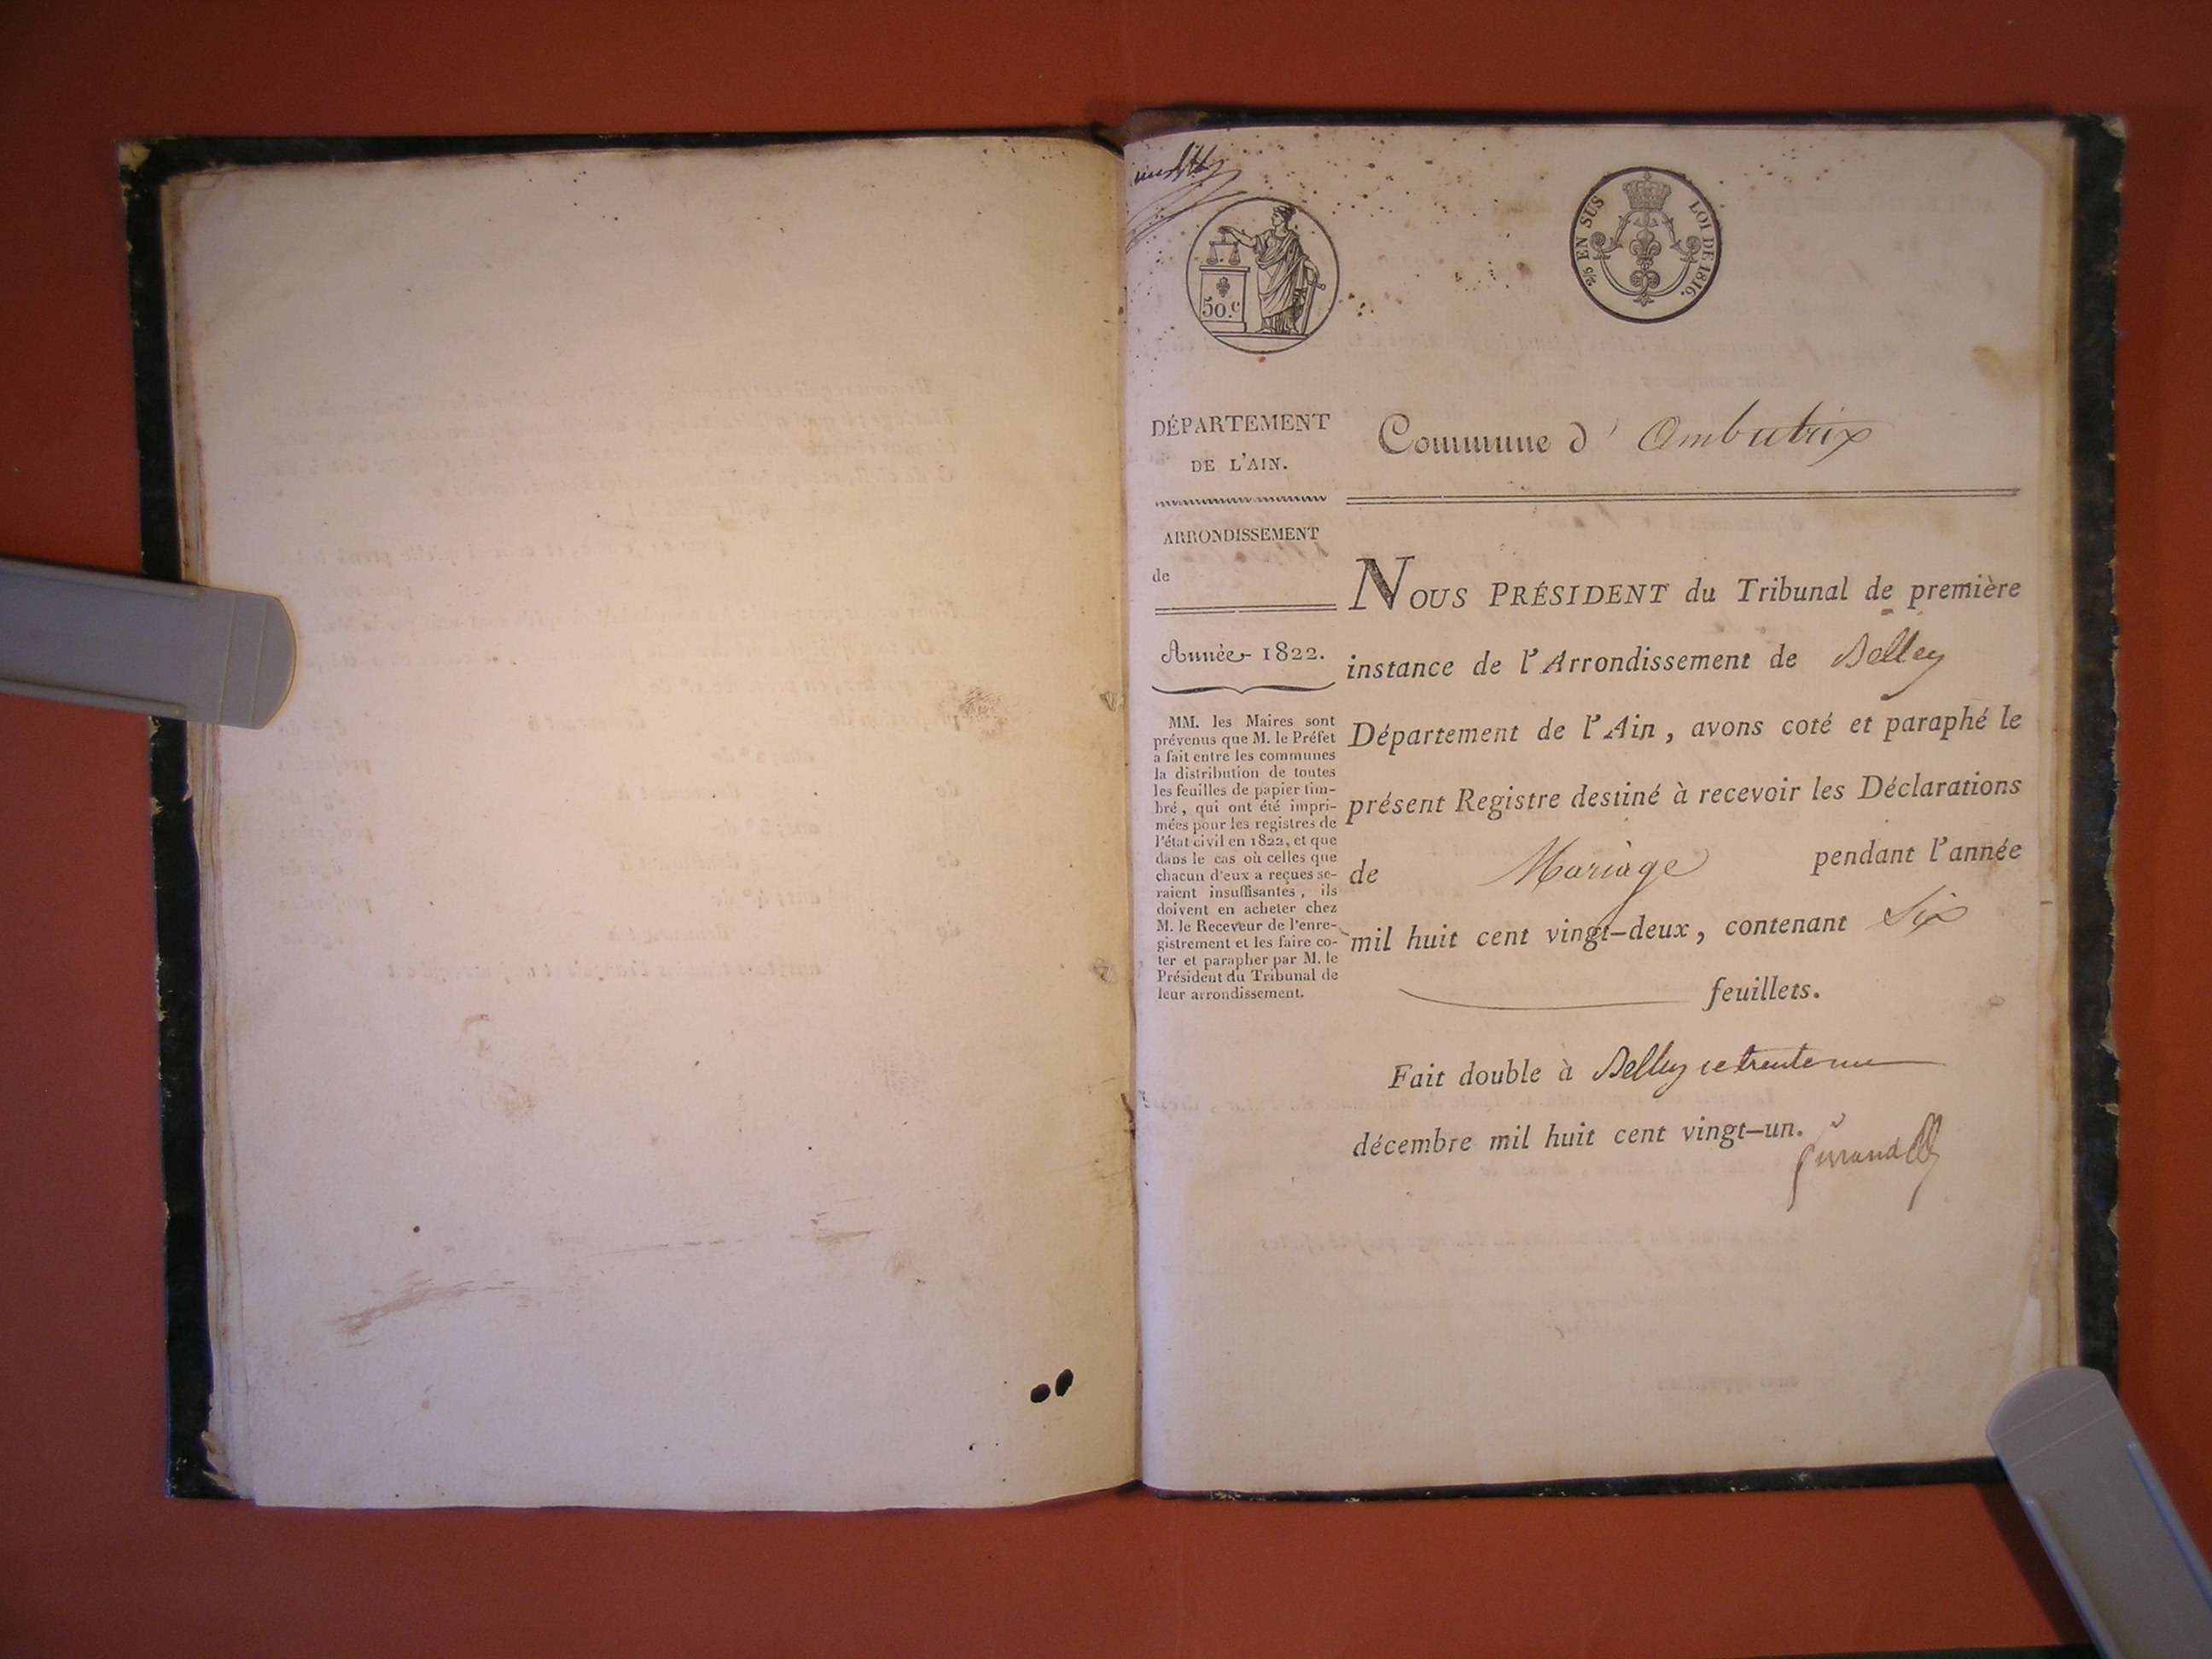 50.c
2/5 EN SUS
LOI DE 1816.
DÉPARTEMENT
DE L'AIN.
Commune d' Ambutrix
ARRONDISSEMENT
de
Année 1822.
MM. les Maires sont
prévenus que M. le Préfet
a fait entre les communes
la distribution de toutes
les feuilles de papier tim-
bré, qui ont été impri-
mées pour les registres de
l'état civil en 1822, et que
dans le cas où celles que
chacun d'eux a reçues se-
raient insuffisantes, ils
doivent en acheter chez
M. le Receveur de l'enre-
gistrement et les faire co-
ter et parapher par M. le
Président du Tribunal de
leur arrondissement.
NOUS PRÉSIDENT du Tribunal de première
instance de l'Arrondissement de Belley
Département de l'Ain, avons coté et paraphé le
présent Registre destiné à recevoir les Déclarations
de Mariage pendant l'année
mil huit cent vingt-deux, contenant Six
feuillets.
Fait double à Belley ce trente un
décembre mil huit cent vingt-un.